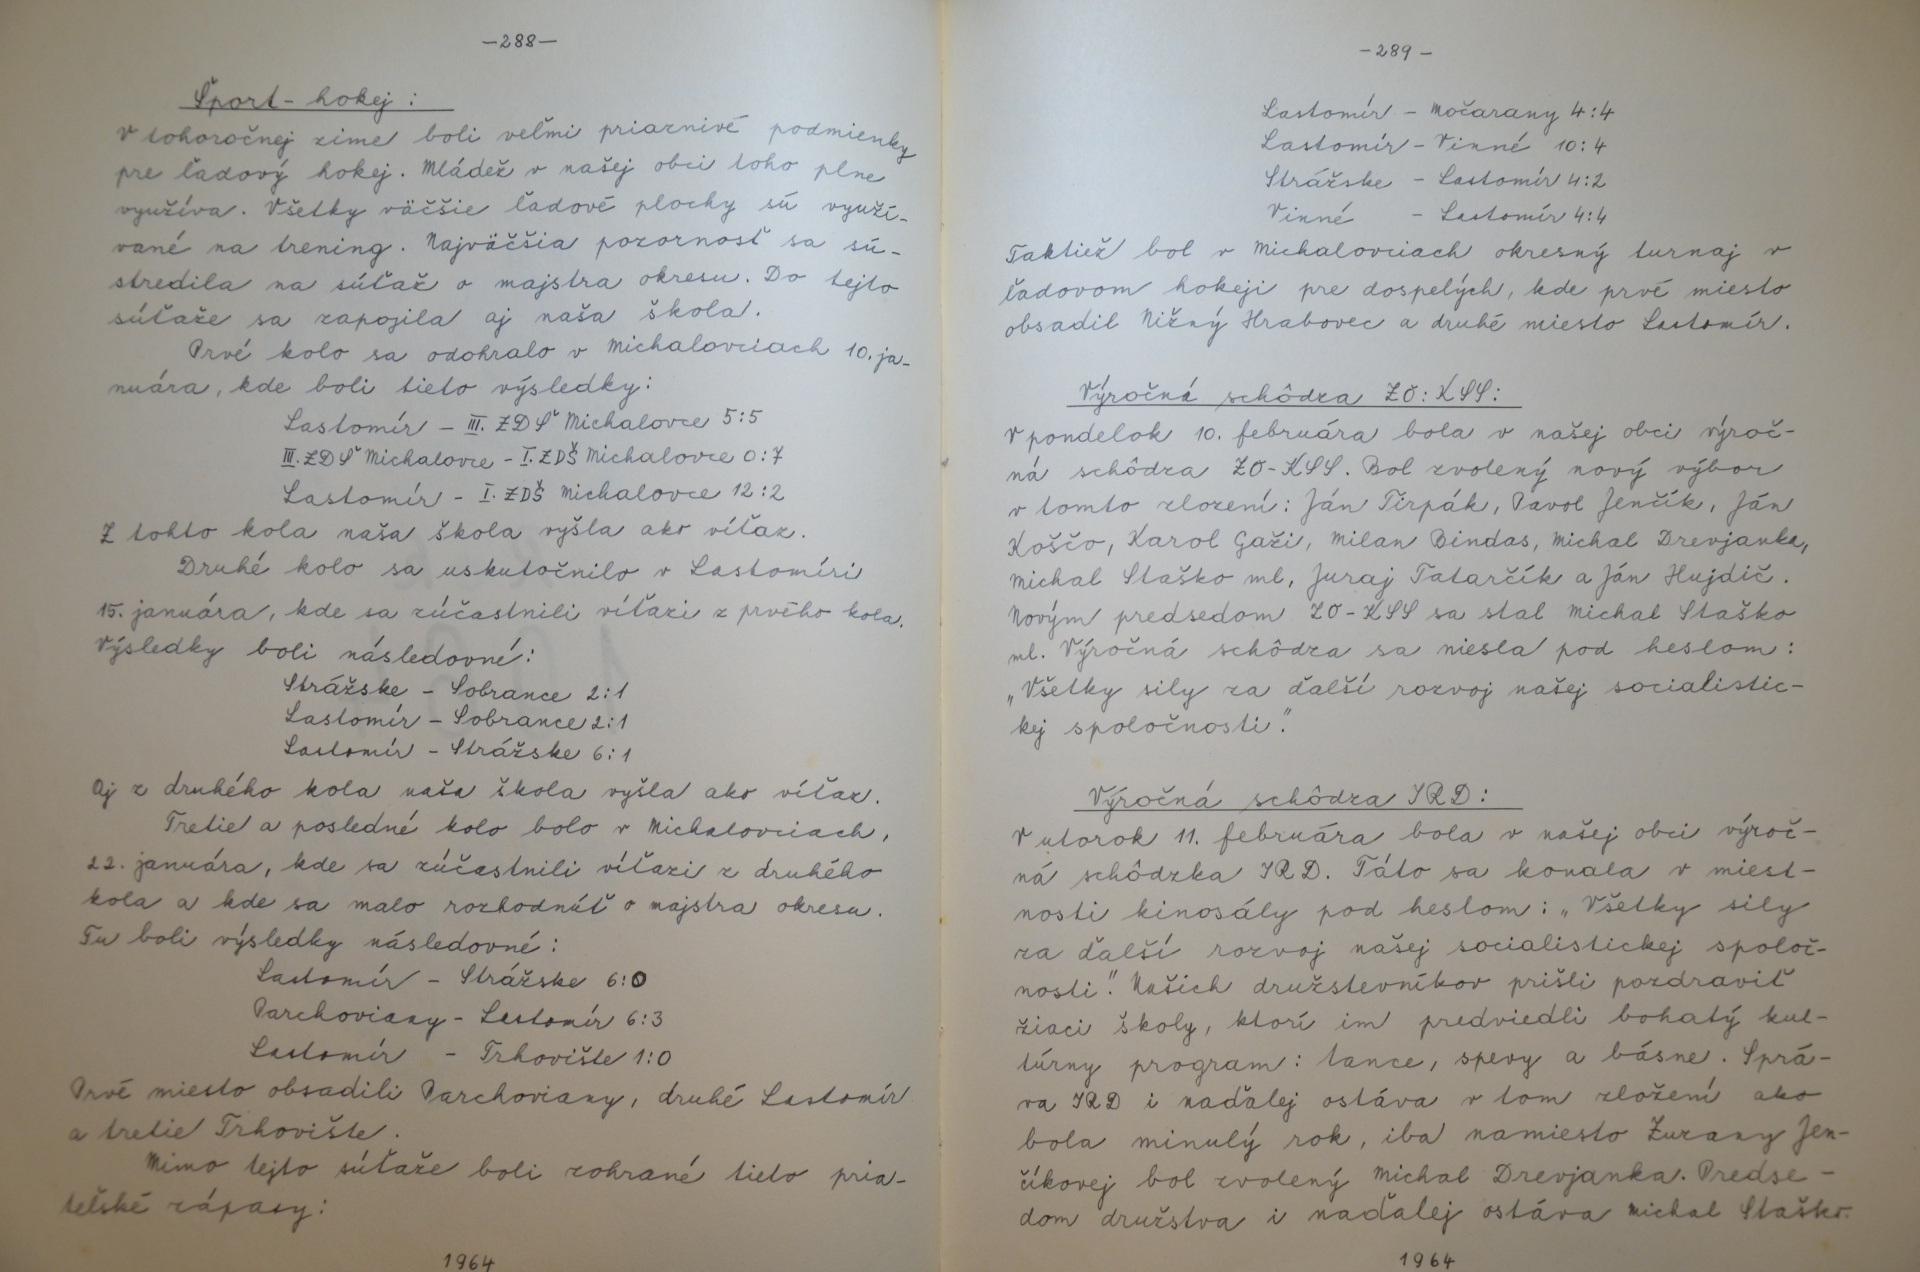 -288-
Šport - hokej :
V tohoročnej zime boli veľmi priaznivé podmienky
pre ľadový hokej. Mládež v našej obci toho plne
využíva. Všetky väčšie ľadové plochy sú využí-
vané na trening. Najväčšia pozornosť sa sú-
stredila na súťaž o majstra okresu. Do tejto
súťaže sa zapojila aj naša škola.
Prvé kolo sa odohralo v Michalovciach 10. ja-
nuára, kde boli tieto výsledky:
Lastomír - III. ZDŠ Michalovce 5:5
III. ZDŠ Michalovce - I. ZDŠ Michalovce 0:7
Lastomír - I. ZDŠ Michalovce 12:2
Z tohto kola naša škola vyšla ako víťaz.
Druhé kolo sa uskutočnilo v Lastomíri
15. januára, kde sa zúčastnili víťazi z prvého kola.
Výsledky boli následovné:
Strážske - Sobrance 2:1
Lastomír - Sobrance 2:1
Lastomír - Strážske 6:1
Aj z druhého kola naša škola vyšla ako víťaz.
Tretie a posledné kolo bolo v Michalovciach,
22. januára, kde sa zúčastnili víťazi z druhého
kola a kde sa malo rozhodnúť o majstra okresu.
Tu boli výsledky následovné:
Lastomír - Strážske 6:0
Parchoviany - Lastomír 6:3
Lastomír - Trhovište 1:0
Prvé miesto obsadili Parchoviany, druhé Lastomír
a tretie Trhovište.
Mimo tejto súťaže boli zohrané tieto pria-
teľské zápasy:
1964
-289-
Lastomír - Močarany 4:4
Lastomír - Vinné 10:4
Strážske - Lastomír 4:2
Vinné - Lastomír 4:4
Taktiež bol v Michalovciach okresný turnaj v
ľadovom hokeji pre dospelých, kde prvé miesto
obsadil Nižný Hrabovec a druhé miesto Lastomír.
Výročná schôdza ZO: KSS:
V pondelok 10. februára bola v našej obci výroč-
ná schôdza ZO-KSS. Bol zvolený nový výbor
v tomto zložení: Ján Tirpák, Pavol Jenčík, Ján
Koščo, Karol Gaži, Milan Bindas, Michal Drevjanka,
Michal Staško ml, Juraj Tatarčík a Ján Hujdič.
Novým predsedom ZO-KSS sa stal Michal Staško
ml. Výročná schôdza sa niesla pod heslom:
„Všetky sily za ďalší rozvoj našej socialistic-
kej spoločnosti."
Výročná schôdza JRD:
V utorok 11. februára bola v našej obci výroč-
ná schôdzka JRD. Táto sa konala v miest-
nosti kinosály pod heslom: „Všetky sily
za ďalší rozvoj našej socialistickej spoloč-
nosti". Našich družstevníkov prišli pozdraviť
žiaci školy, ktorí im predviedli bohatý kul-
túrny program: tance, spevy a básne. Sprá-
va JRD i naďalej ostáva v tom zložení ako
bola minulý rok, iba namiesto Zuzany Jen-
číkovej bol zvolený Michal Drevjanka. Predse-
dom družstva i naďalej ostáva Michal Staško.
1964